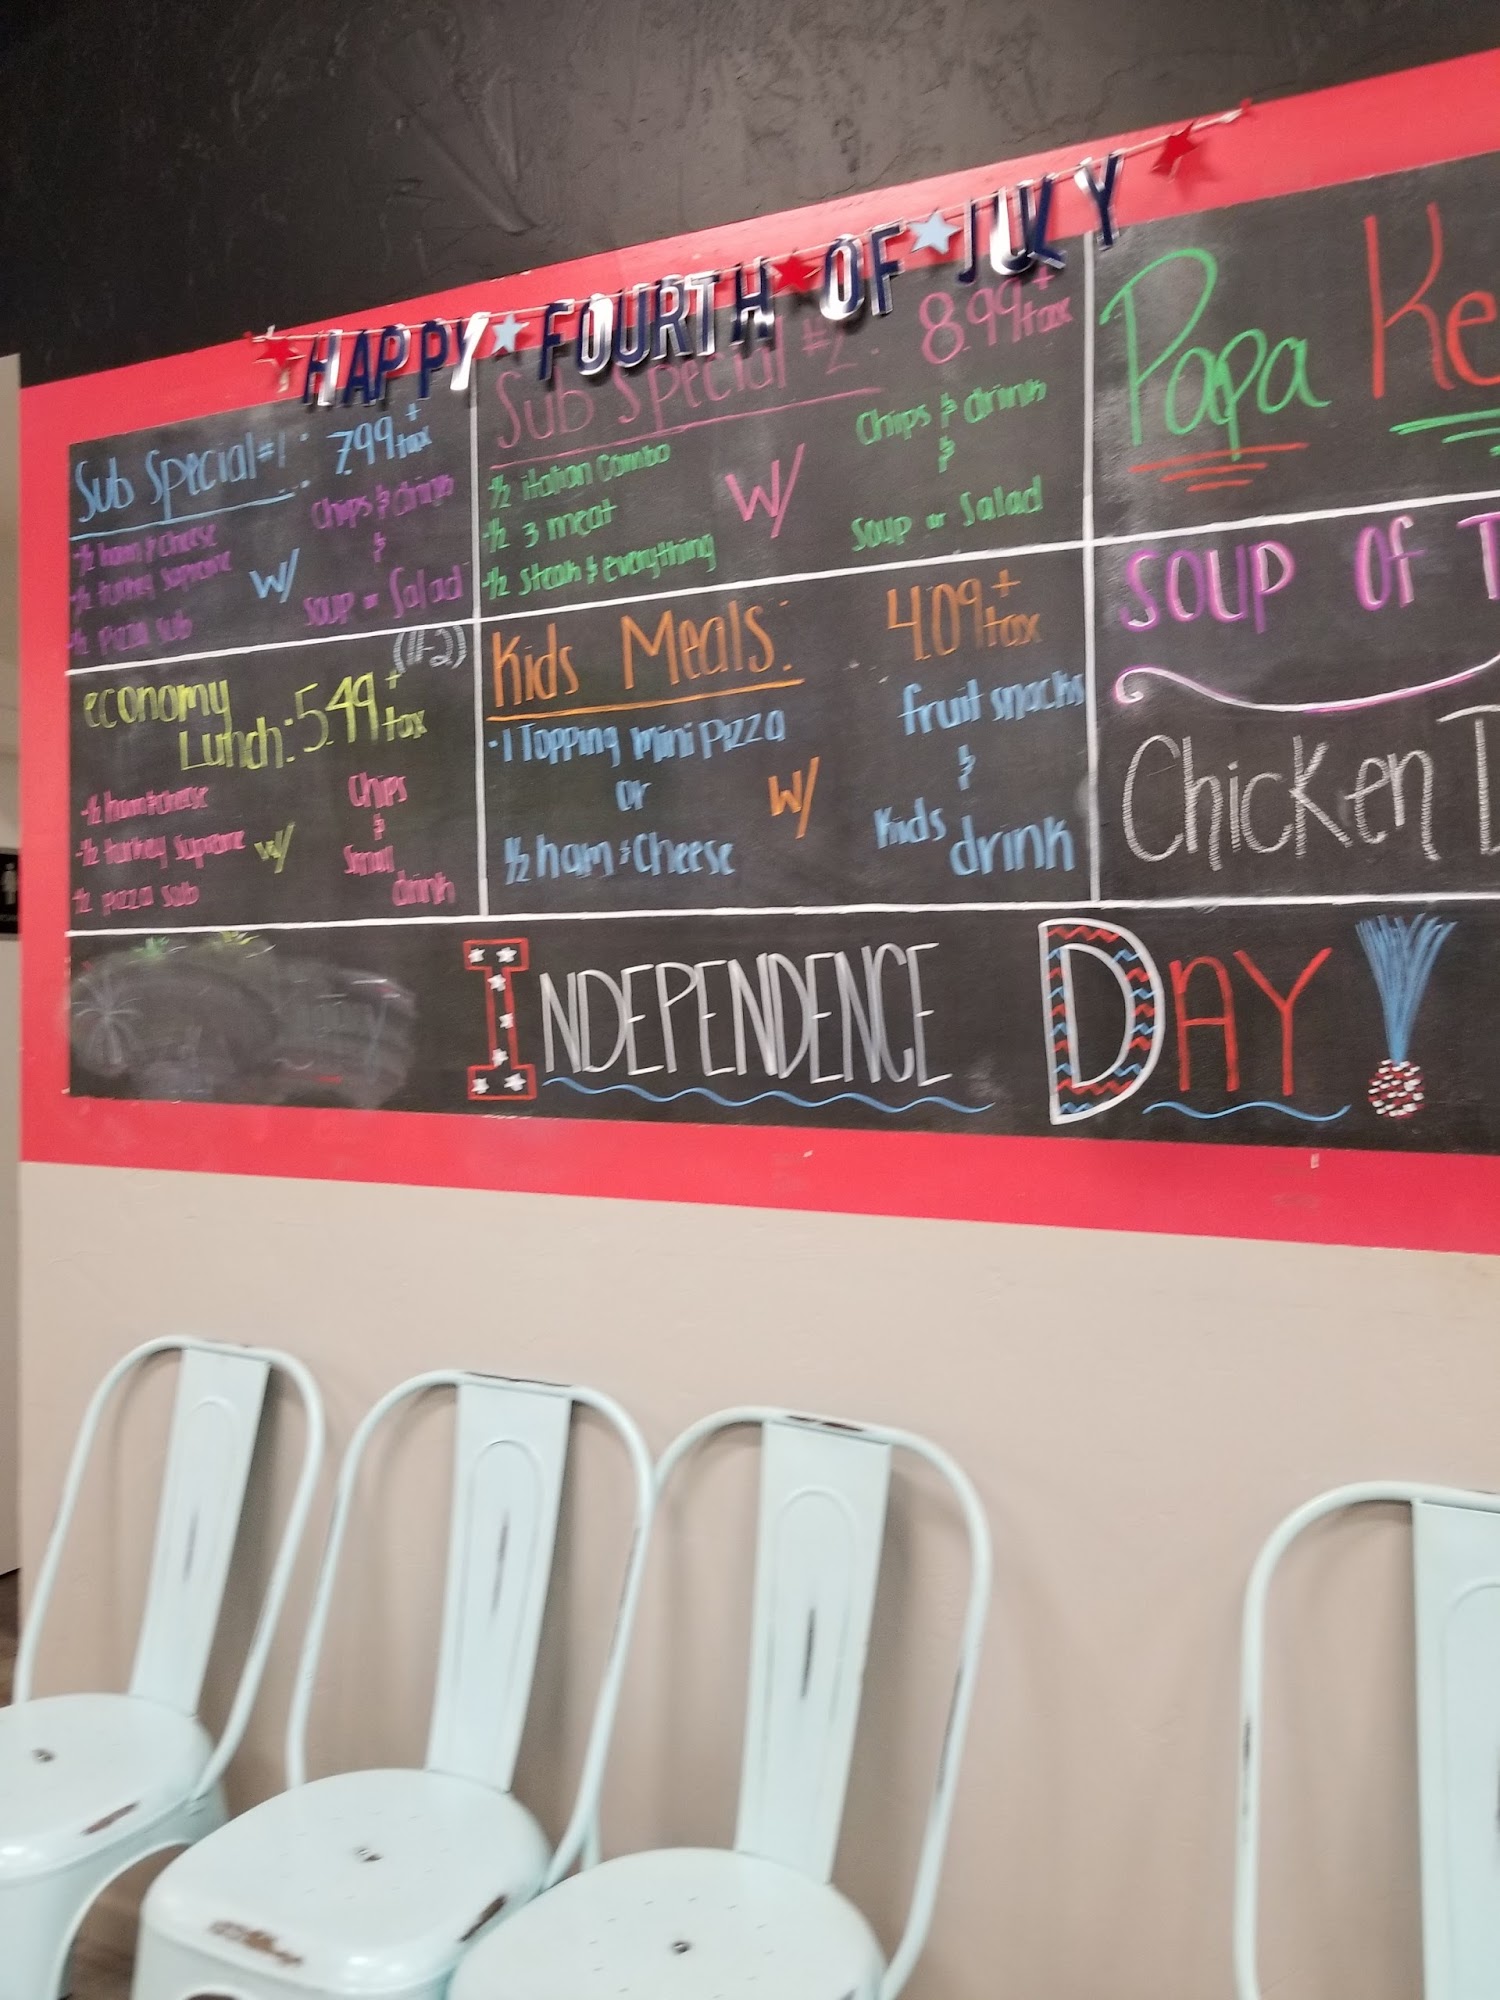 HAPPY FOURTH OF JULY
Sub Special #1: 7.99 + tax
-1/2 ham & cheese
-1/2 turkey supreme
-1/2 pizza sub
w/
Chips & drink
&
Soup or Salad
Sub Special #2 8.99 + tax
-1/2 italian combo
-1/2 3 meat
-1/2 steak & everything
w/
Chips & drink
&
Soup or Salad
Papa Ke
economy (11-2)
Lunch: 5.49 + tax
-1/2 ham & cheese
-1/2 turkey supreme
-1/2 pizza sub
w/
Chips
&
Small
drink
Kids Meals: 4.09 + tax
-1 Topping mini pizza
or
1/2 ham & cheese
w/
fruit snacks
&
Kids drink
Soup of T
Chicken
INDEPENDENCE DAY!